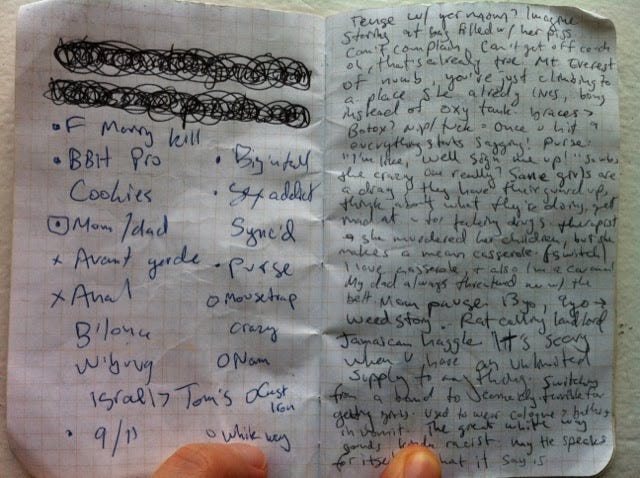 F Marry kill
BBH Pro
Cookies
Mom/dad
Avant garde
Anal
Israel > Tom's
9/11
Big intell
Sex addict
Sync'd
Purse
Mousetrap
Crazy
Nam
Cast Iron
White way
tense w/ yer mom? Imagine
staring at bag filled w/ her piss
Can't complain. Can't get off couch
oh, that's already true. Mt. Everest
of numb, you've just climbing to
a place she already lives, bong
instead of oxy tank. braces >
Botox? nip/tuck - once u hit a
everything starts sagging! Purse:
"I'm like, well sign me up!"
she crazy are really? Sane girls are
a drag. they have their guard up,
think about what they're doing, get
mad at u for taking drugs. therapist
she murdered her children, but she
makes a mean casserole. (switch)
I love casserole + also I'm a
My dad always threatened me w/ the
belt Mom pause. Bye
Weed story. Rat calling landlord
Jamaican haggle It's scary
when u have an unlimited
supply to anything. Switching
from a band to comedy terrible for
getting girls. Used to wear cologne >
in vomit. The great white way
sounds kinda racist. may he speaks
for itself what it say is